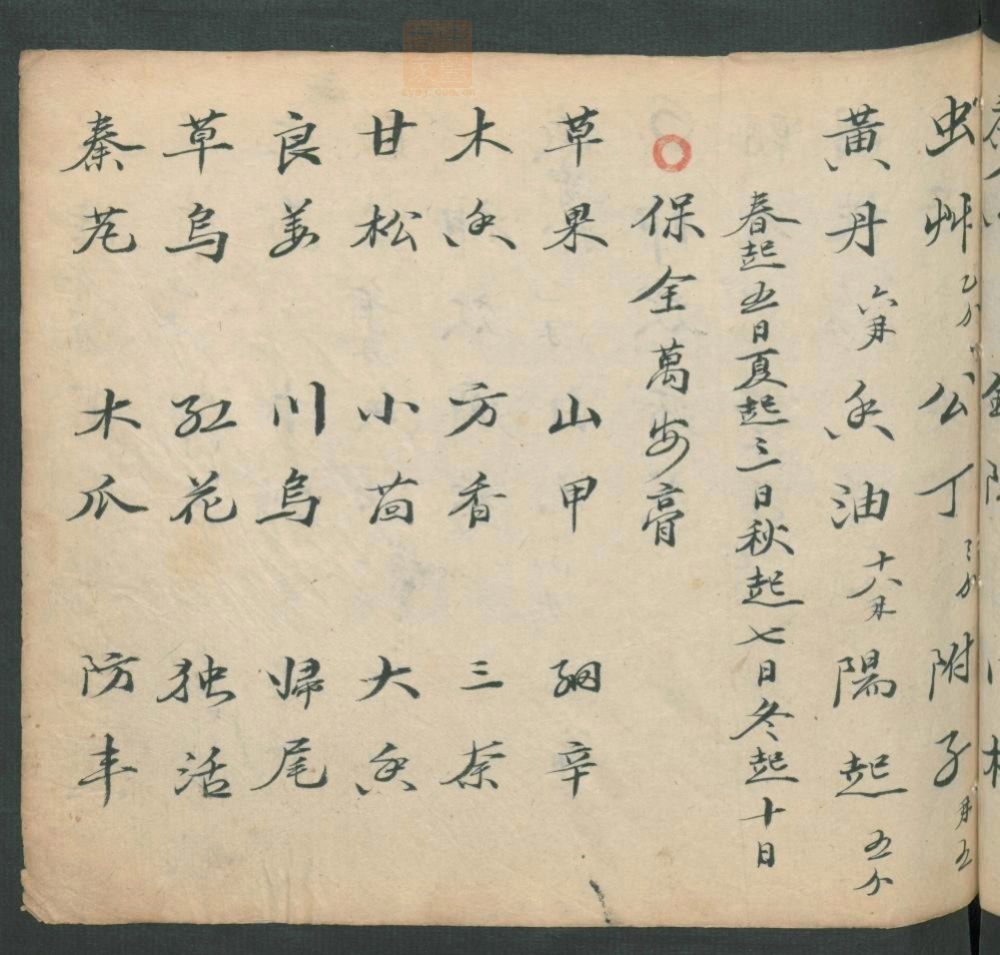 虫艸 公丁 附子
黃丹 六 油 十八 陽起 五分
春起五日夏起三日秋起七日冬起十日
保全萬安膏
草果 山甲 細辛
木香 方香 三柰
甘松 小茴 大香
良姜 川烏 归尾
草烏 紅花 独活
秦艽 木瓜 防丰